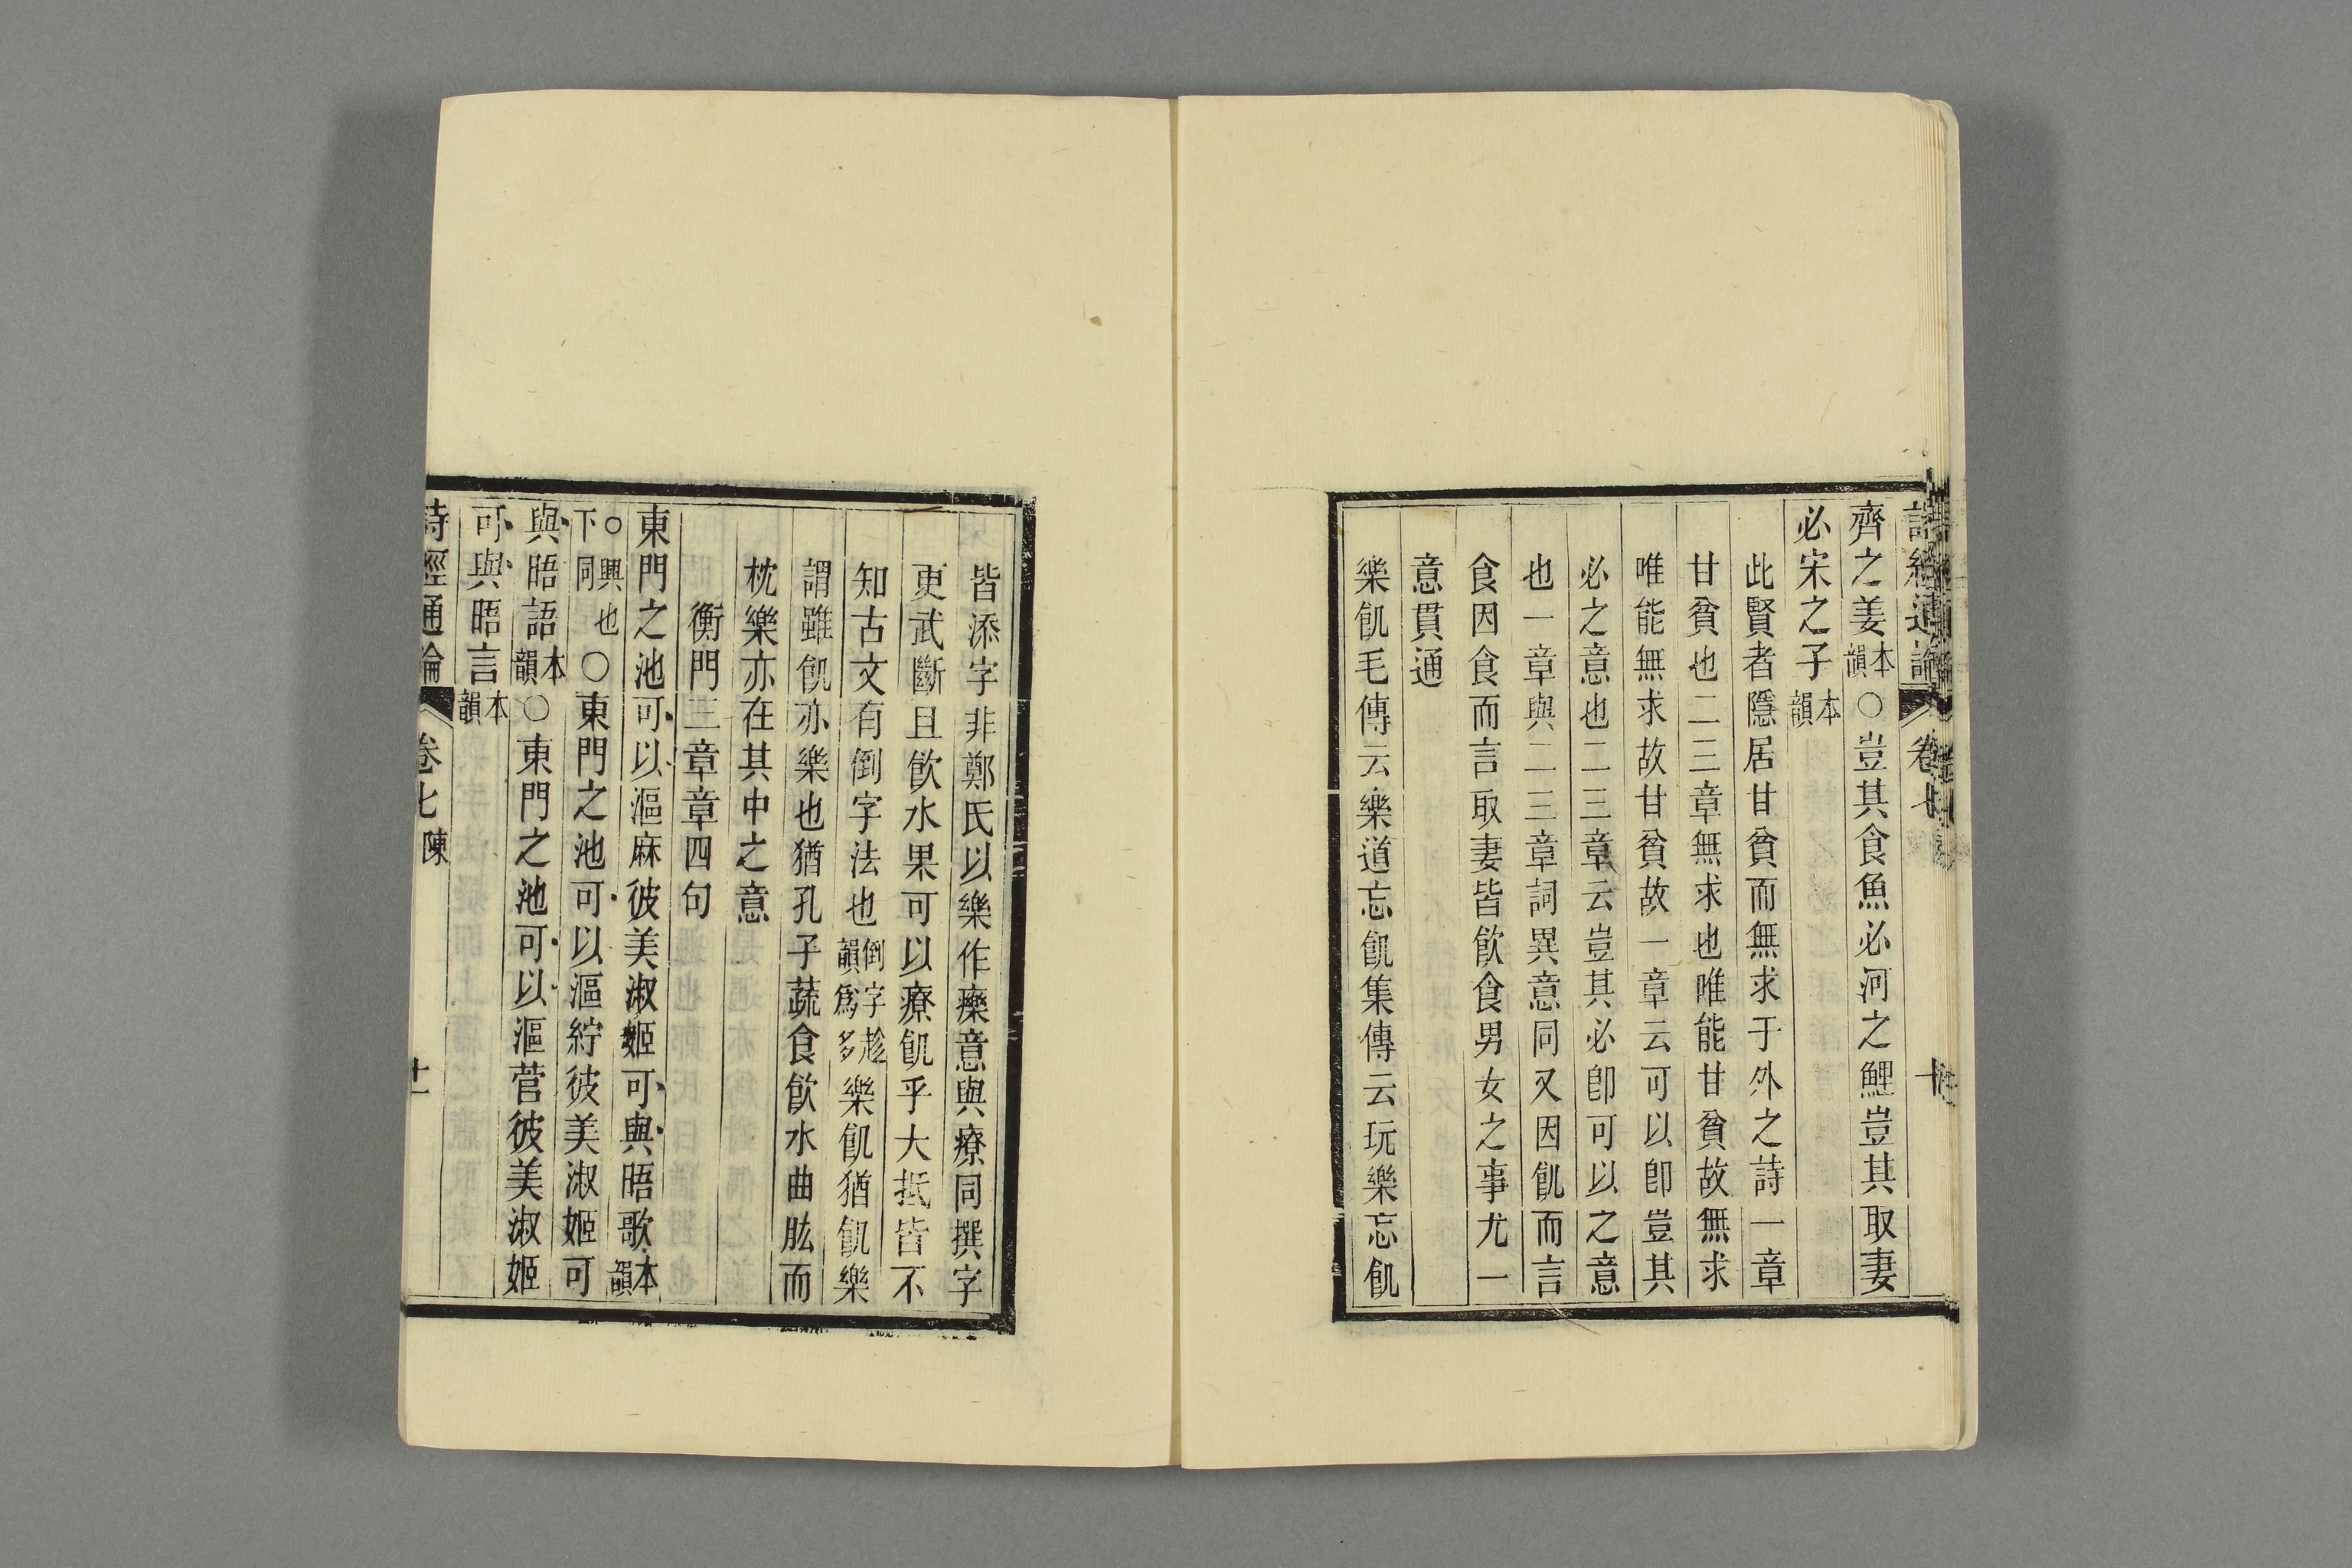 詩經通論 卷七 十
齊之姜本韻○豈其食魚必河之鯉豈其取妻
必宋之子本韻
此賢者隱居甘貧而無求于外之詩一章
甘貧也二三章無求也唯能甘貧故無求
唯能無求故甘貧故一章云可以卽豈其
必之意也二三章云豈其必卽可以之意
也一章與二三章詞異意同又因飢而言
食因食而言取妻皆飲食男女之事尤一
意貫通
樂飢毛傳云樂道忘飢集傳云玩樂忘飢
皆添字非鄭氏以樂作𤻲意與療同撰字
更武斷且飲水果可以療飢乎大抵皆不
知古文有倒字法也倒字趁韻爲多樂飢猶飢樂
謂雖飢亦樂也猶孔子蔬食飲水曲肱而
枕樂亦在其中之意
衡門三章章四句
東門之池可以漚麻彼美淑姬可與晤歌本韻
○興也下同○東門之池可以漚紵彼美淑姬可
與晤語本韻○東門之池可以漚菅彼美淑姬
可與晤言本韻
詩經通論 卷七 陳 十一